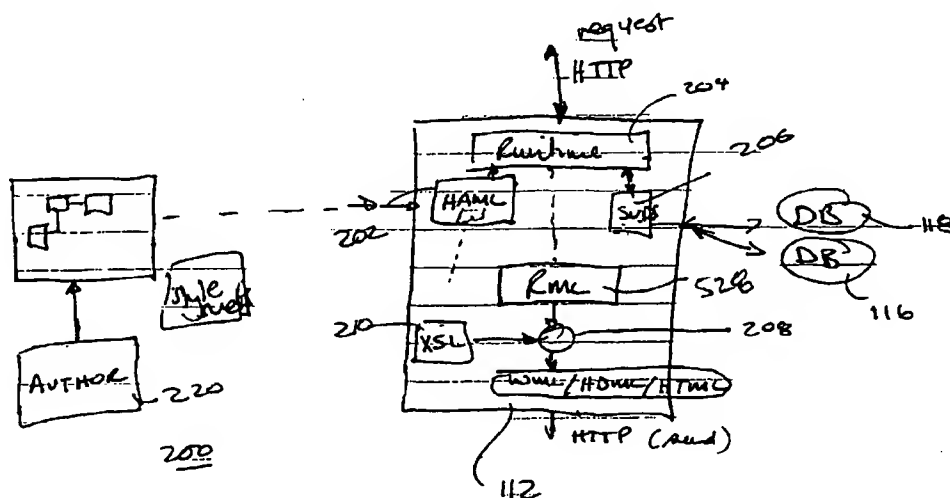 request
HTTP
204
Runtime
206
HAML
202
DB
118
DB
116
RML
528
style
sheet
210
XSL
208
AUTHOR
220
WML/HDML/HTML
HTTP (send)
200
112